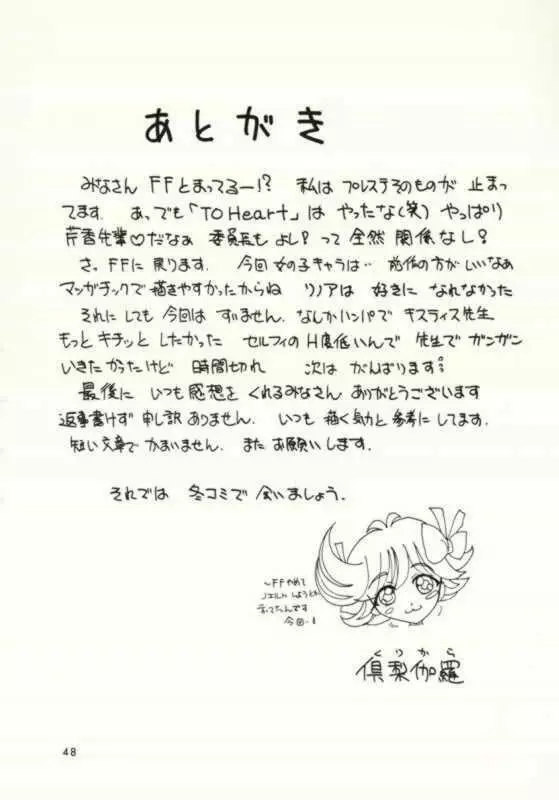 あとがき
みなさん FFとまってるー!? 私は プレステそのものが 止まっ
てます. あっ、でも「TO Heart」は やったな(笑) やっぱり
芹香先輩♡だなぁ 委員長も よし? って 全然 関係なし?
さ。FFに戻ります. 今回 女の子キャラは‥ 前作の方がいいなあ
マンガチックで描きやすかったからね リノアは 好きに なれなかった
それにしても 今回は すいません. なんしかハンパで キスティス先生
もっと キチッと したかった セルフィのH度低いんで 先生で ガンガン
いきたかったけど 時間切れ 次は がんばります。
最後に いつも感想を くれるみなさん ありがとうございます
返事書けず 申し訳 ありません. いつも 描く気力と 参考に してます.
短い文章で かまいません. また お願いします.
それでは 冬コミで 会いましょう.
~FFやめて
ノエルにしようとか
言ってたんです
今回-!
くりから
倶梨伽羅
48